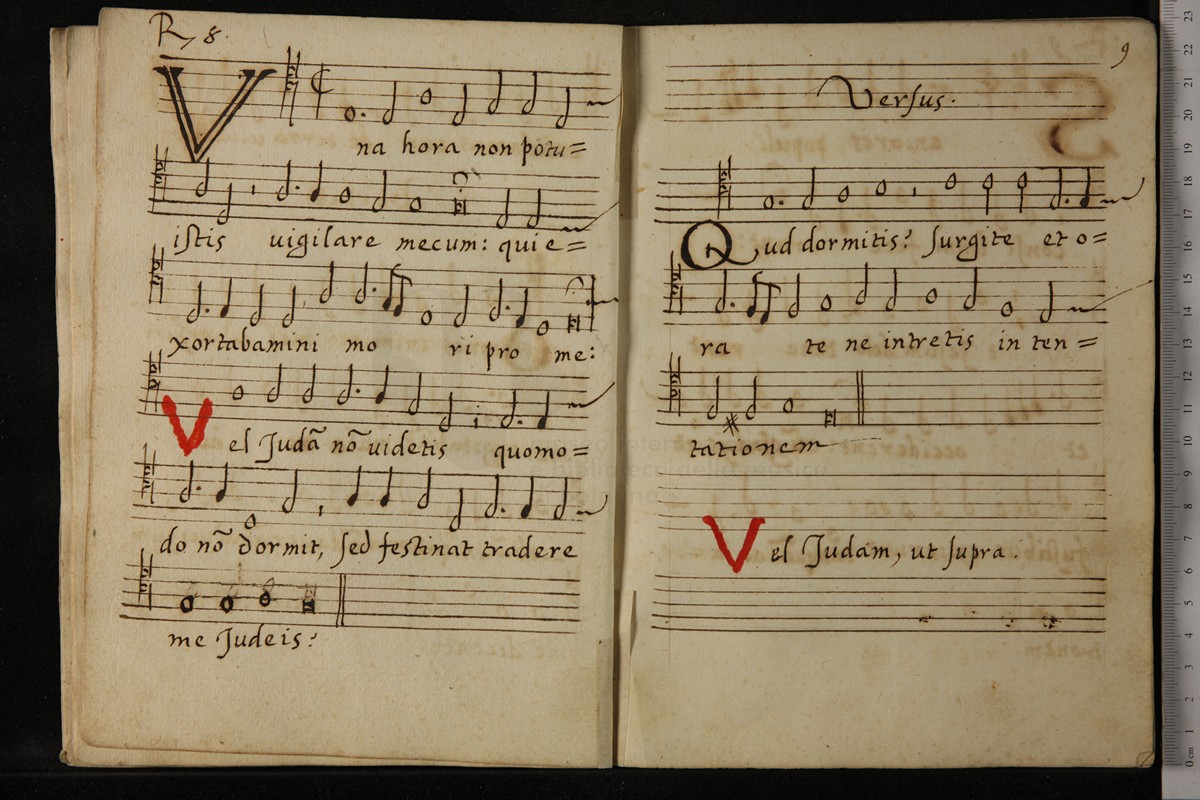 R, 8.
Vna hora non potu=
istis uigilare mecum: qui e=
xortabamini mo ri pro me:
Vel Judã nõ uidetis quomo=
do nõ dormit, sed festinat tradere
me Judeis?
9
Versus.
Quid dormitis? surgite et o=
ra te ne intretis in ten=
tationem
Vel Judam, ut supra.